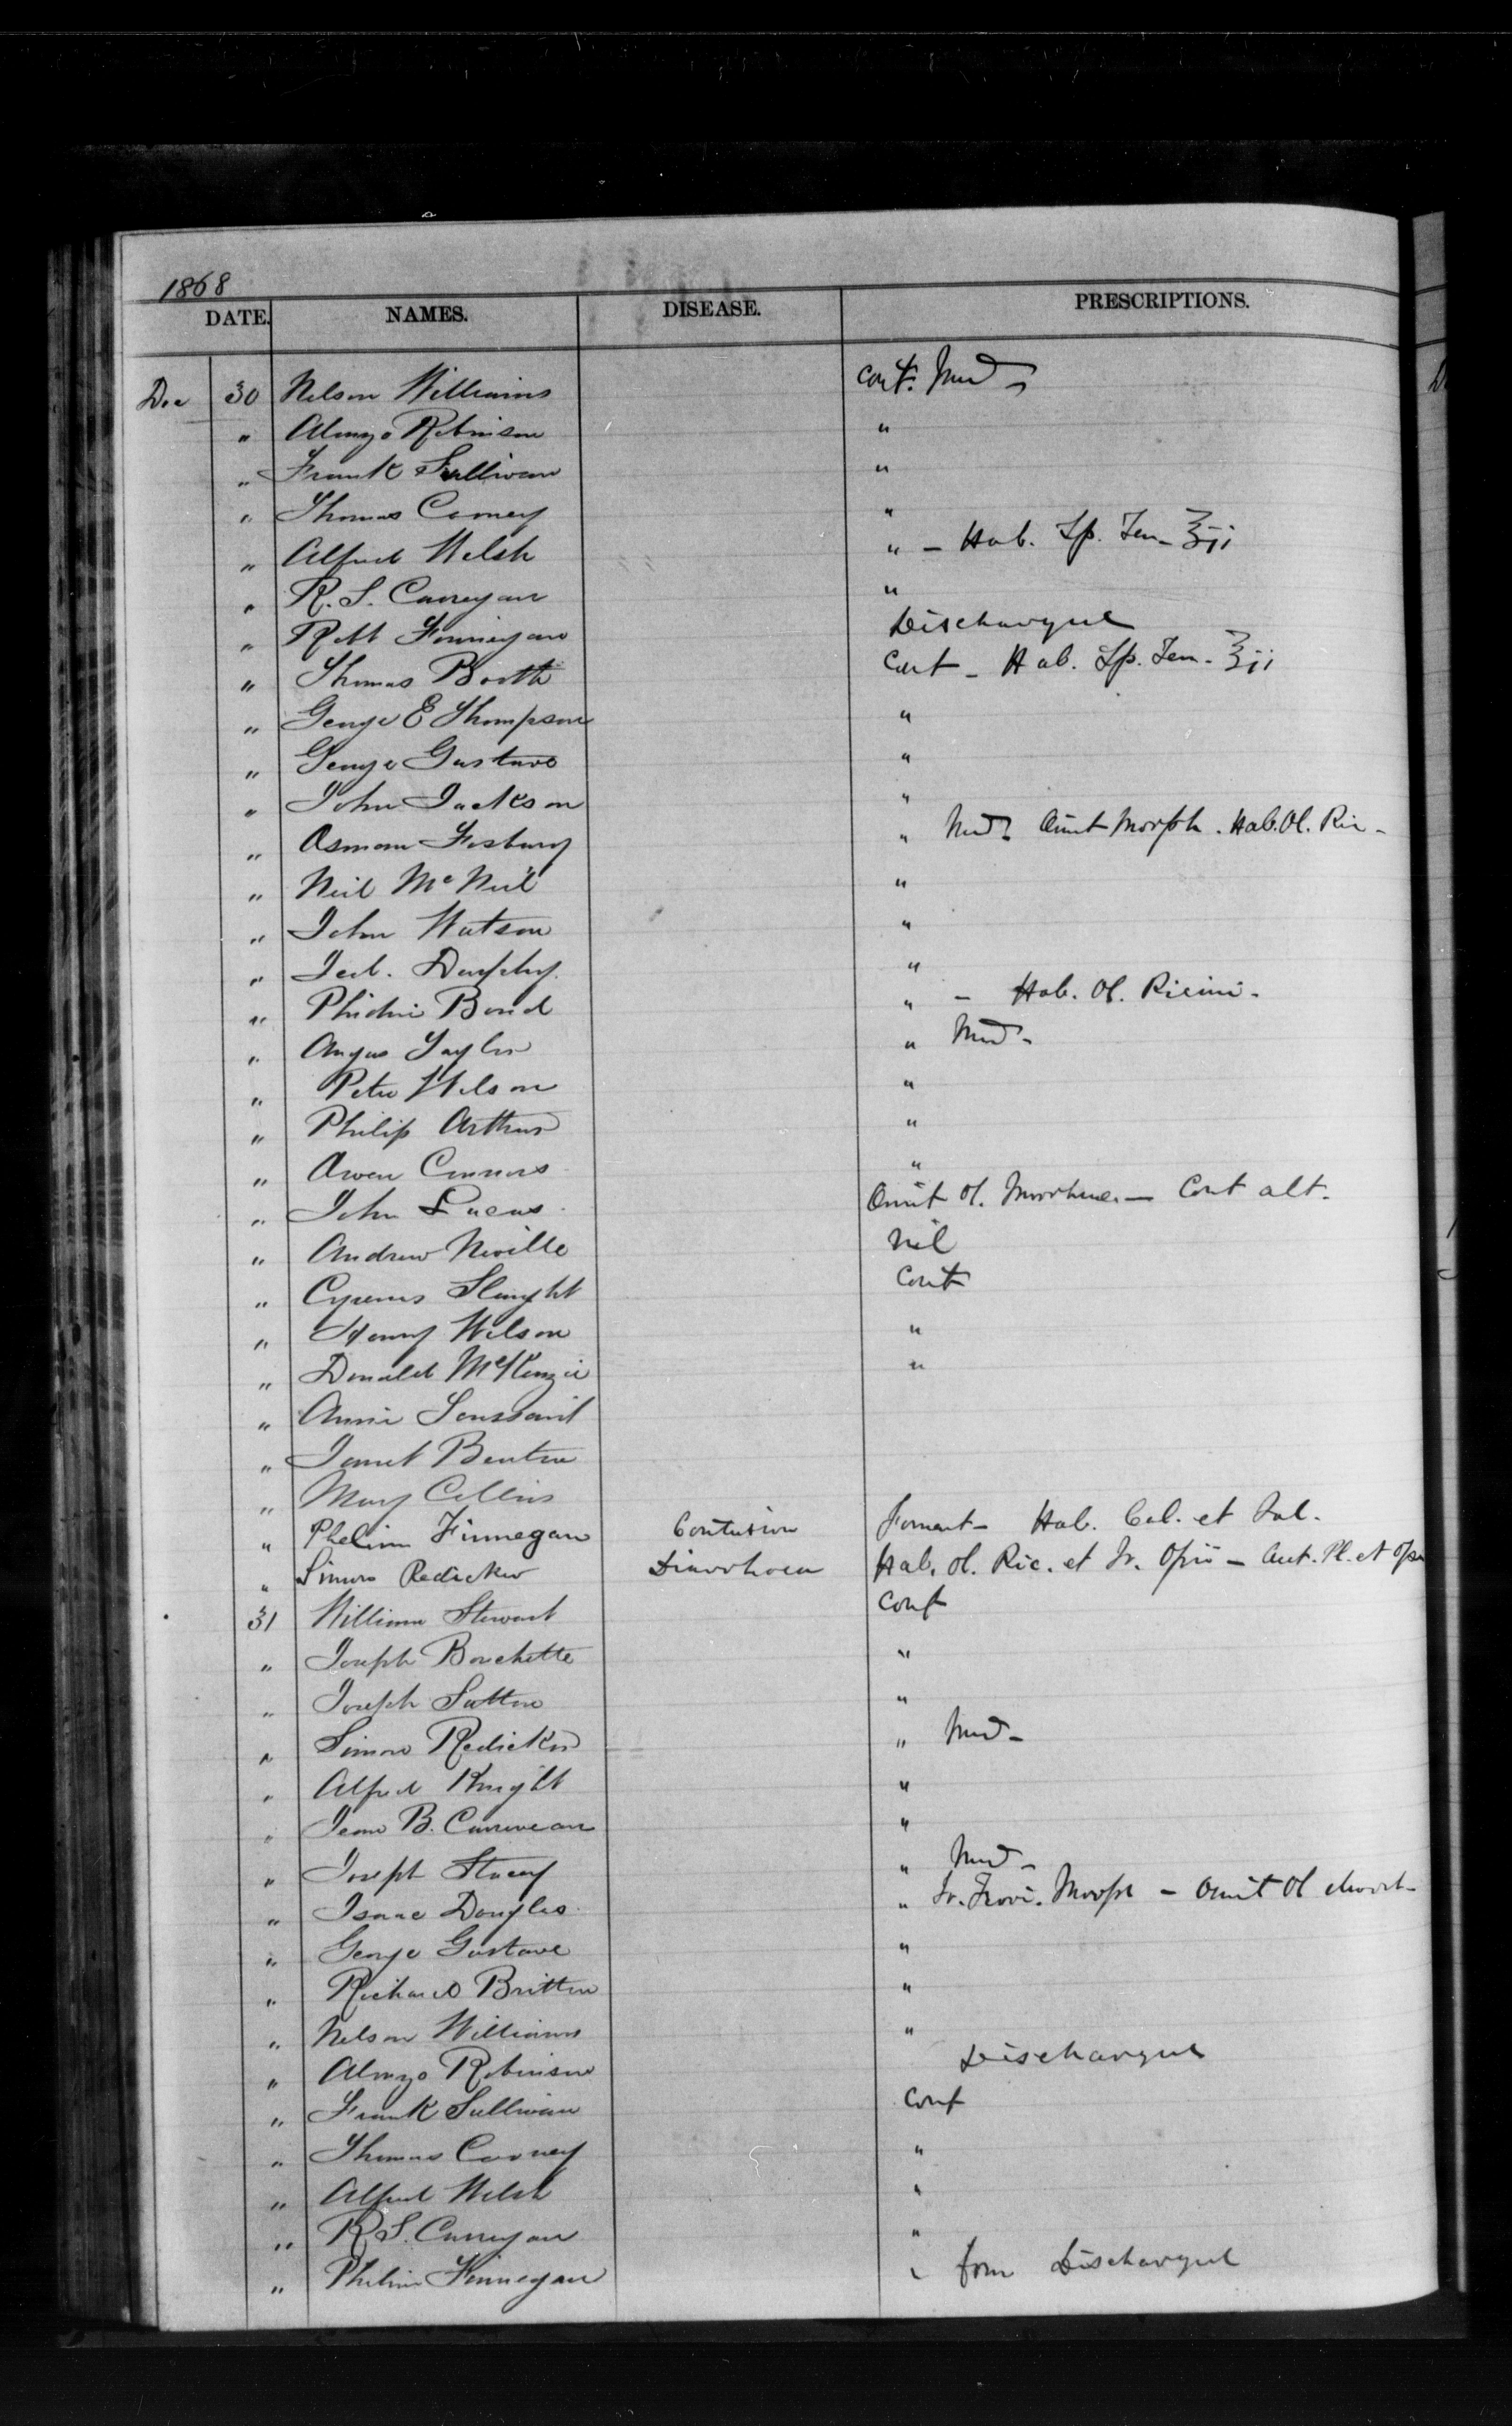 1868
DATE. NAMES. DISEASE. PRESCRIPTIONS.
Dec 30 Nelson Williams Cont. Med
" Alonzo Robinson "
" Frank Sullivan "
" Thomas Carney "
" Alfred Welsh " - Hab. Sp. Ten- ℥ij
" R. S. Carregan "
" Robt Finnigan Discharged
" Thomas Booth Cont - Hab. Sp. Ten. ℥ij
" George E Thompson "
" George Gustave "
" John Jackson "
" Osmom Fosbury " Med. Omit Morph. Hab. Ol. Ric -
" Neil McNeil "
" John Watson "
" Jed. Murphy "
" Bond " - Hab. Ol. Ricini -
" Angus Taylor " Med -
" Peter Wilson "
" Philip Arthur "
" Owen Connors "
" John Lucas Omit Ol. Morrhuae. - Cont alt.
" Andrew Neville Nil
" Cyrenus Slaught Cont
" Henry Wilson "
" Donald McKenzie "
" Annie Toussaint
" Janet Benton
" Mary Collins
" Phelim Finnegan Contusion Foment - Hab. Cal. et Jal.
" Simon Redicker Diarrhoea Hab. Ol. Ric. et Tr. Opii - Pl. et Opii
31 William Stewart Cont
" Joseph Bouchette "
" Joseph Sutton "
" Simon Redicker " Med -
" Alfred Knight "
" Jean B. "
" Joseph Stacey " Med -
" Isaac Douglas " Morph - Omit Ol Morrh -
" George Gustave "
" Richard Britton "
" Nelson Williams "
" Alonzo Robinson Discharged
" Frank Sullivan Cont
" Thomas Carney "
" Alfred Welsh "
" R. S. Carregan "
" Phelim Finnegan " fom Discharged